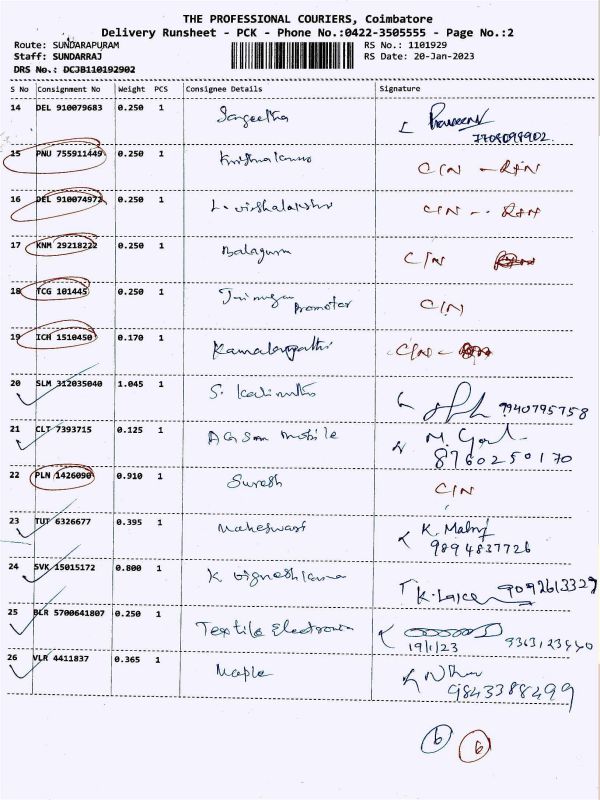 THE PROFESSIONAL COURIERS, Coimbatore
Delivery Runsheet - PCK - Phone No.:0422-3505555 - Page No.:2
Route: SUNDARAPURAM RS No.: 1101929
Staff: SUNDARRAJ RS Date: 20-Jan-2023
DRS No.: DCJB110192902
S No Consignment No Weight PCS Consignee Details Signature
14 DEL 910079683 0.250 1 Sangeetha
7708099902
15 PNU 755911449 0.250 1 C/N
16 DEL 910074972 0.250 1 C/N
17 KNM 29218222 0.250 1 Balaguru C/N
18 TCG 101445 0.250 1 C/N
Promotor
19 ICH 1510450 0.170 1 C/N
20 SLM 312035040 1.045 1 S. 9940795758
21 CLT 7393715 0.125 1 Mobile
8760250170
22 PLN 1426090 0.910 1 Suresh C/N
23 TUT 6326677 0.395 1 Maheswari K.
9894837726
24 SVK 15015172 0.800 1 K 9092613329
25 BLR 5700641807 0.250 1 Textile
19/1/23 9363123440
26 VLR 4411837 0.365 1 Maple
9843388499
6 6